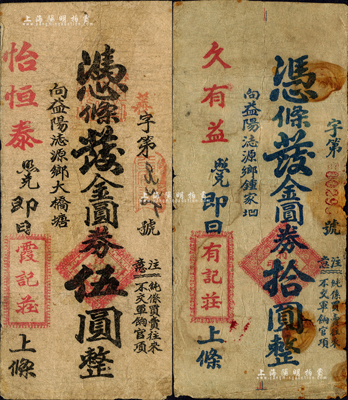 上海阳明拍卖
怡恒泰
憑條發金圓券伍圓整
字第
號
向益陽滤源鄉大橋塘
照兑即日
霞記莊
上條
注意
純係買賣往來
不交軍餉官項
上海阳明拍卖
久有益
憑條發金圓券拾圓整
字第
號
向益陽滤源鄉鍾家坳
照兑即日
有記莊
上條
注意
純係買賣往來
不交軍餉官項